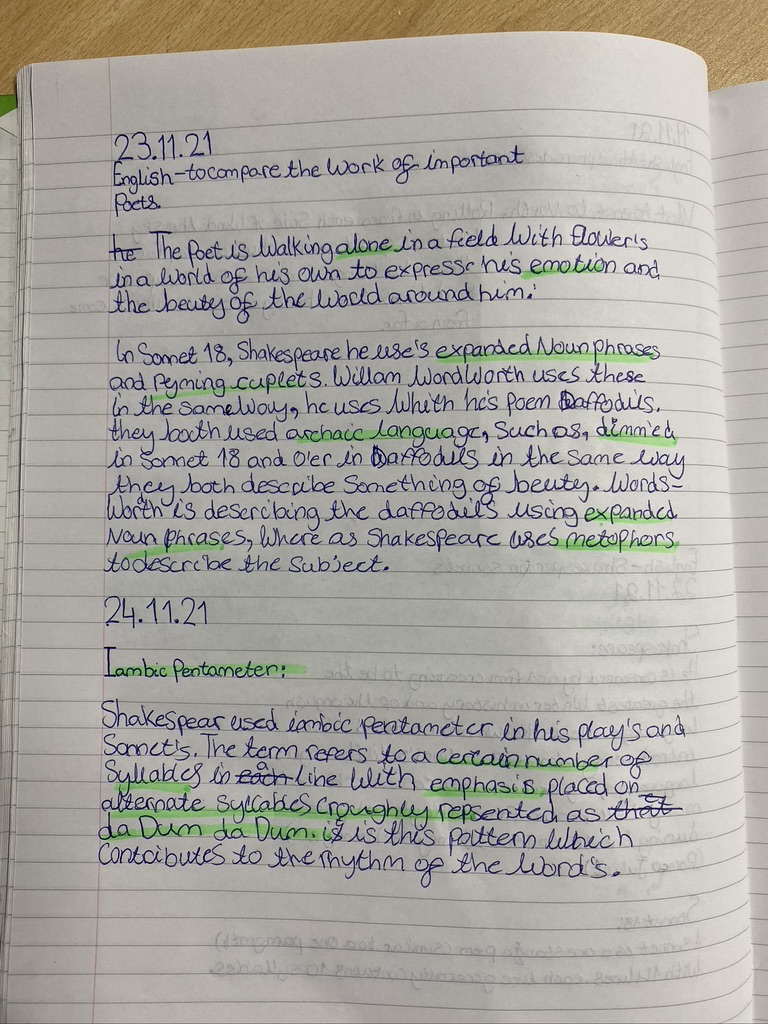 23.11.21
English-to compare the work of important
Poets.
he The Poet is walking alone in a field with flower's
in a world of his own to express his emotion and
the beuty of the world around him.
In Sonnet 18, Shakespeare he use's expanded Noun phrases
and Pyming cuplets. Willam WordWorth uses these
in the same way, he uses whith his poem Daffodils.
they both used archaic language, such as, dimmied
in Sonnet 18 and O'er in Daffodils in the same way
they both describe something of beuty. Words-
worth is describing the daffodil's using expanded
Noun phrases, where as Shakespeare uses metophors
to describe the subject.
24.11.21
Iambic Pentameter:
Shakespear used iambic pentameter in his play's and
Sonnet's. The term refers to a certain number of
Syllables in each a line with emphasis placed on
alternate syllables croughly repsented as that a
da Dum da Dum. it is this pattern which
contcibutes to the rhythm of the word's.